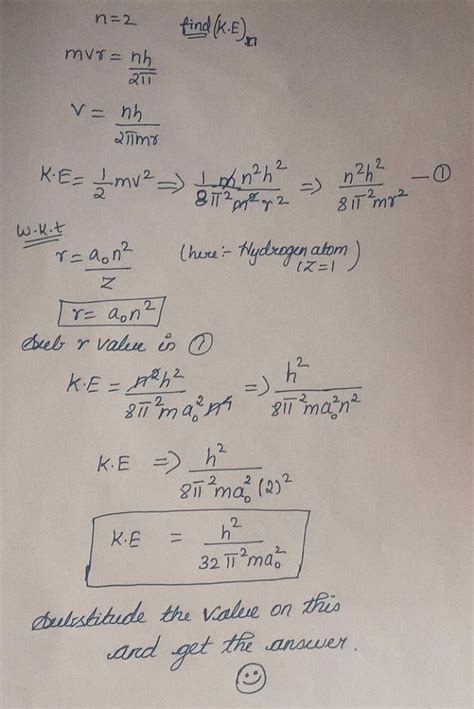 n=2 find (K.E)n
mvr = nh/2π
v = nh/2πmr
K.E = 1/2 mv² => 1 m n²h²/8π²m²r² => n²h²/8π²mr² — ①
W.K.t
r = a₀n²/Z (here:- Hydrogen atom
(Z=1)
r = a₀n²
Sub r value in ①
K.E = n²h²/8π²ma₀²n⁴ => h²/8π²ma₀²n²
K.E => h²/8π²ma₀²(2)²
K.E = h²/32π²ma₀²
Substitude the value on this
and get the answer.